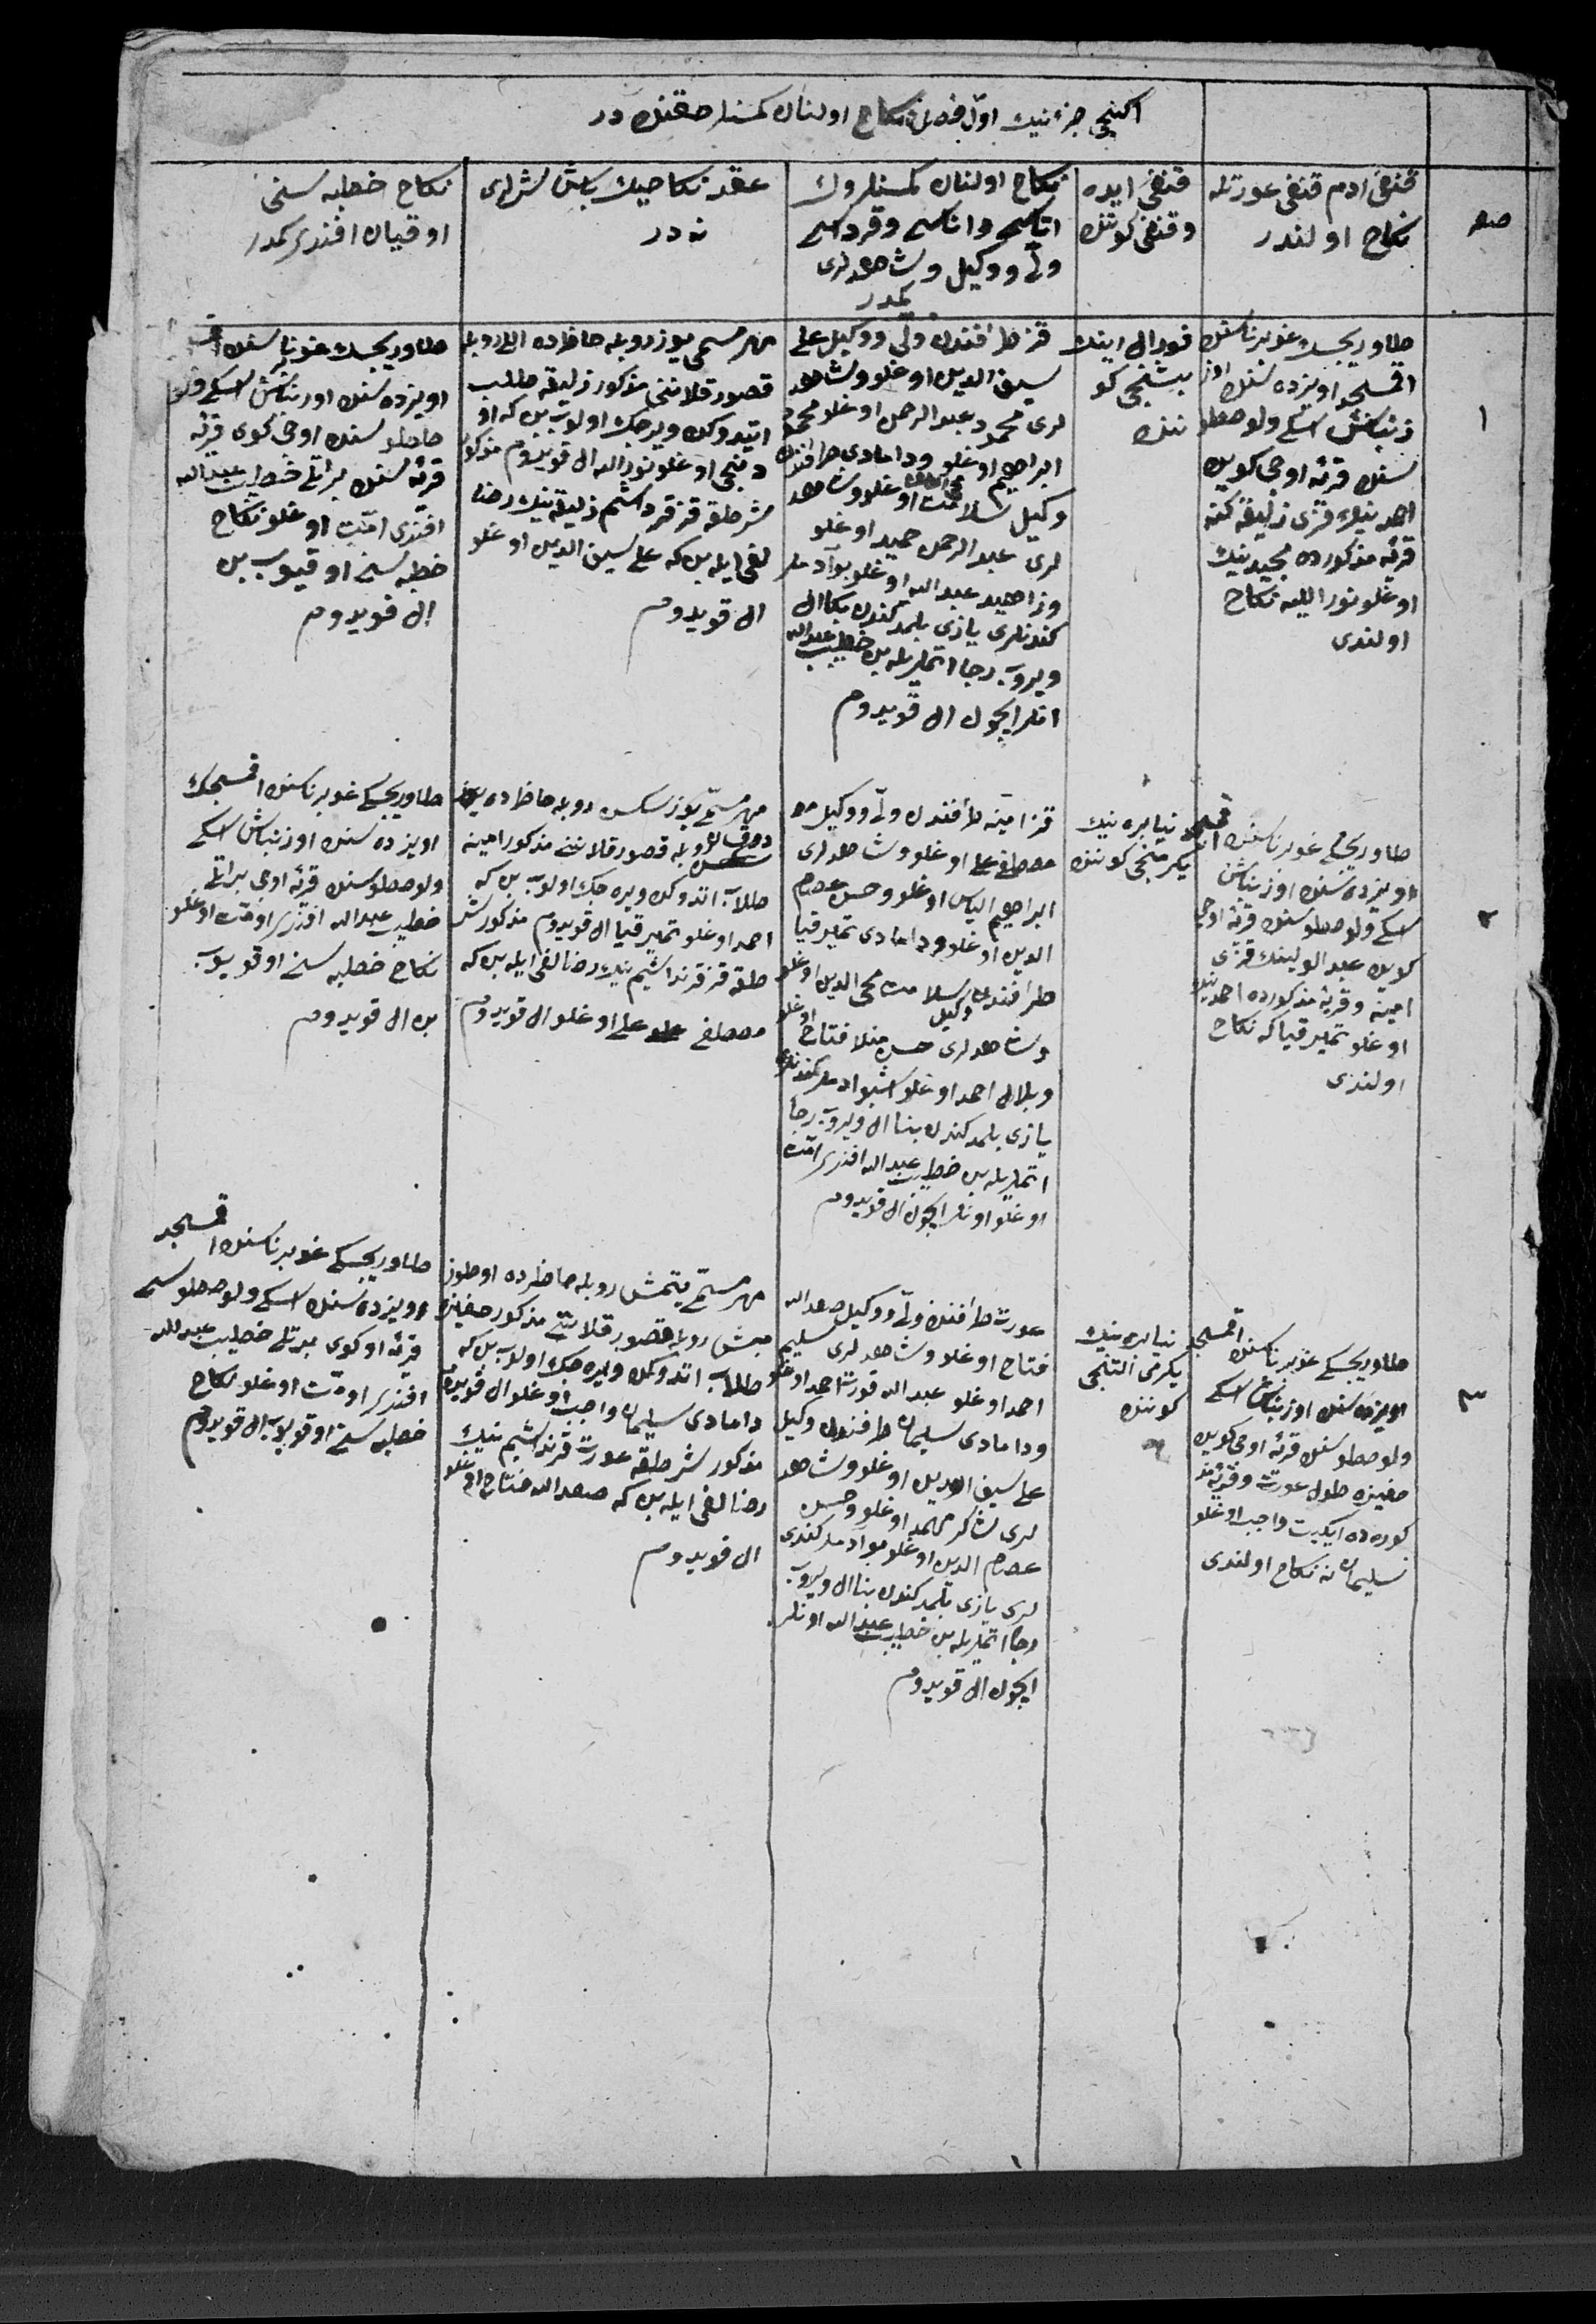 اکنچی جزؤنیك اوّل فصلی نکاح اولنان کمسنلر حقنده در
صفر
قنغی ادم قنغی عورتله
نکاح اولندر
قنغی ایده
وقنغی کوننده
نکاح اولنان کمسنلروك
اتاسی واناسی وقرداسی
ولّی ووکیل وشاهدلری
کمدر
عقد نکاحنیك باش شرطلری
نه در
نکاح خطبه سنی
اوقیان افندی کمدر
١
طاوریچیسك غوبرناسنك
اقمسجد اویزده سنك اوز
نباش اسکی ولوصطلو
سنك قریه اوجی کوینك
احمدنیك قزی زلیقه کنه
قریه مذکورده مجیدنیك
اوغلو نوراللیه نکاح
اولندی
فورال اینك
بیشنجی کو
ننده
قز طرافندن ولّی ووکیل علی
سیف الدین اوغلو وشاهد
لری محمد عبدالرحمن اوغلو محمد
ابراهیم اوغلو ودامادی طرافندن
وکیل سلامت اوغلو وشاهد
لری عبدالرحمن حمید اوغلو
وزاهید عبدالله اوغلو بوآدملر
کندنلری یازی بلمدکندن بکاال
ویروب رجا اتملریله بن خطیب عبدالله
انلر ایچون ال قویدوم
مهر مسمّی یوز روبله حاظرده اللی روبله
قصور قلاننی مذکور زلیقه طلب
اتیدوکده ویرجك اولوب بن که او
دنجی اوغلو نورالله ال قویدوم مذکور
شرطلقه قز قرداشم زلیقه نیك رضا
لغی ایله بن که علی سیف الدین اوغلو
ال قویدوم
طاوریچیسك غوبرناسنك اقمسجد
اویزده سنك اورنباش اسکی ولو
صطلوسنك اوجی کوی قریه
قریه سنك براتلی خطیب عبدالله
افندی امّت اوغلو نکاح
خطبه سنی اوقیوب بن
ال قویدوم
٢
طاوریچیسکی غوبرناسنك اقمسجد
اویزده سنك اوزنباش
اسکی ولوصطلوسنك قریه اوجی
کوینك عبدالولینك قزی
امینه وقریه مذکورده احمدنیك
اوغلو تمیرقیاکه نکاح
اولندی
نیابره نیك
یکرمنجی کوننده
قز امینه طرافندن ولّی ووکیل
مصطفی علی اوغلو وشاهدلری
ابراهیم الیاس اوغلو وحسن عصام
الدین اوغلو ودامادی تمیرقیا
طرافندن وکیل سلامت محی الدین اوغلو
وشاهدلری حسن منلا فتاح اوغلو
وبلال احمد اوغلو اشبوادملر کندنلری
یازی بلمدکندن بنا ال ویروب رجا
اتملریله بن خطیب عبدالله افندی امّت
اوغلو اونلر ایچون ال قویدوم
مهر مسمّی یوز سکسن روبله حاظرده
روبله قصور قلاننی مذکور امینه
طلاّب اتدوکده ویره جك اولوب بن که
احمد اوغلو تمیرقیا ال قویدوم مذکور شر
طلقه قز قرنداشیم نیك رضالغی ایله بن که
مصطفی علی اوغلو ال قویدوم
طاوریچیسکی غوبرناسنك اقمسجدك
اویزده سنك اوزنباش اسکی
ولوصطلوسنك قریه اوجی براتلی
خطیب عبدالله افندی اومّت اوغلو
نکاح خطبه سنی اوقویوب
بن ال قویدوم
٣
طاوریچیسکی غوبرناسنك اقمسجد
اویزده سنك اوزنباش اسکی
ولوصطلوسنك قریه اوجی کوینك
صفیزه طول عورت وقریه مذ
کورده ایکییت واجب اوغلو
سلیمان نه نکاح اولندی
نیابره نیك
یکرمی التنجی
کوننده
عورت طرافندن ولّی ووکیل صعدالله
فتاح اوغلو وشاهدلری سلیم
احمد اوغلو عبدالله قورتا احمد اوغلو
ودامادی سلیمان طرفندن وکیل
علی سیف الدین اوغلو وشاهد
لری شاکر مهمد اوغلو وحسن
عصام الدین اوغلو بوادملر کندی
لری یازی بلمدکندن بنا ال ویروب
رجا اتملریله بن خطیب عبدالله اونلر
ایچون ال قویدوم
مهر مسمّی یتمش روبله حاظرده اوطوز
بیش روبله قصور قلاننی مذکور صفیزه
طلاّب اتدوکده ویره جك اولوب بن که
دامادی سلیمان واجب اوغلو ال قویدوم
مذکور شرطلقه عورت قرنداشیم نیك
رضالغی ایله بن که صعدالله فتاح اوغلو
ال قویدوم
طاوریچیسکی غوبرناسنك اقمسجد
اویزده سنك اسکی ولوصطلوسی
قریه اوکوی برتلی خطیب عبدالله
افندی اومّت اوغلو نکاح
خطبه سنی اوقویوب ال قویدوم